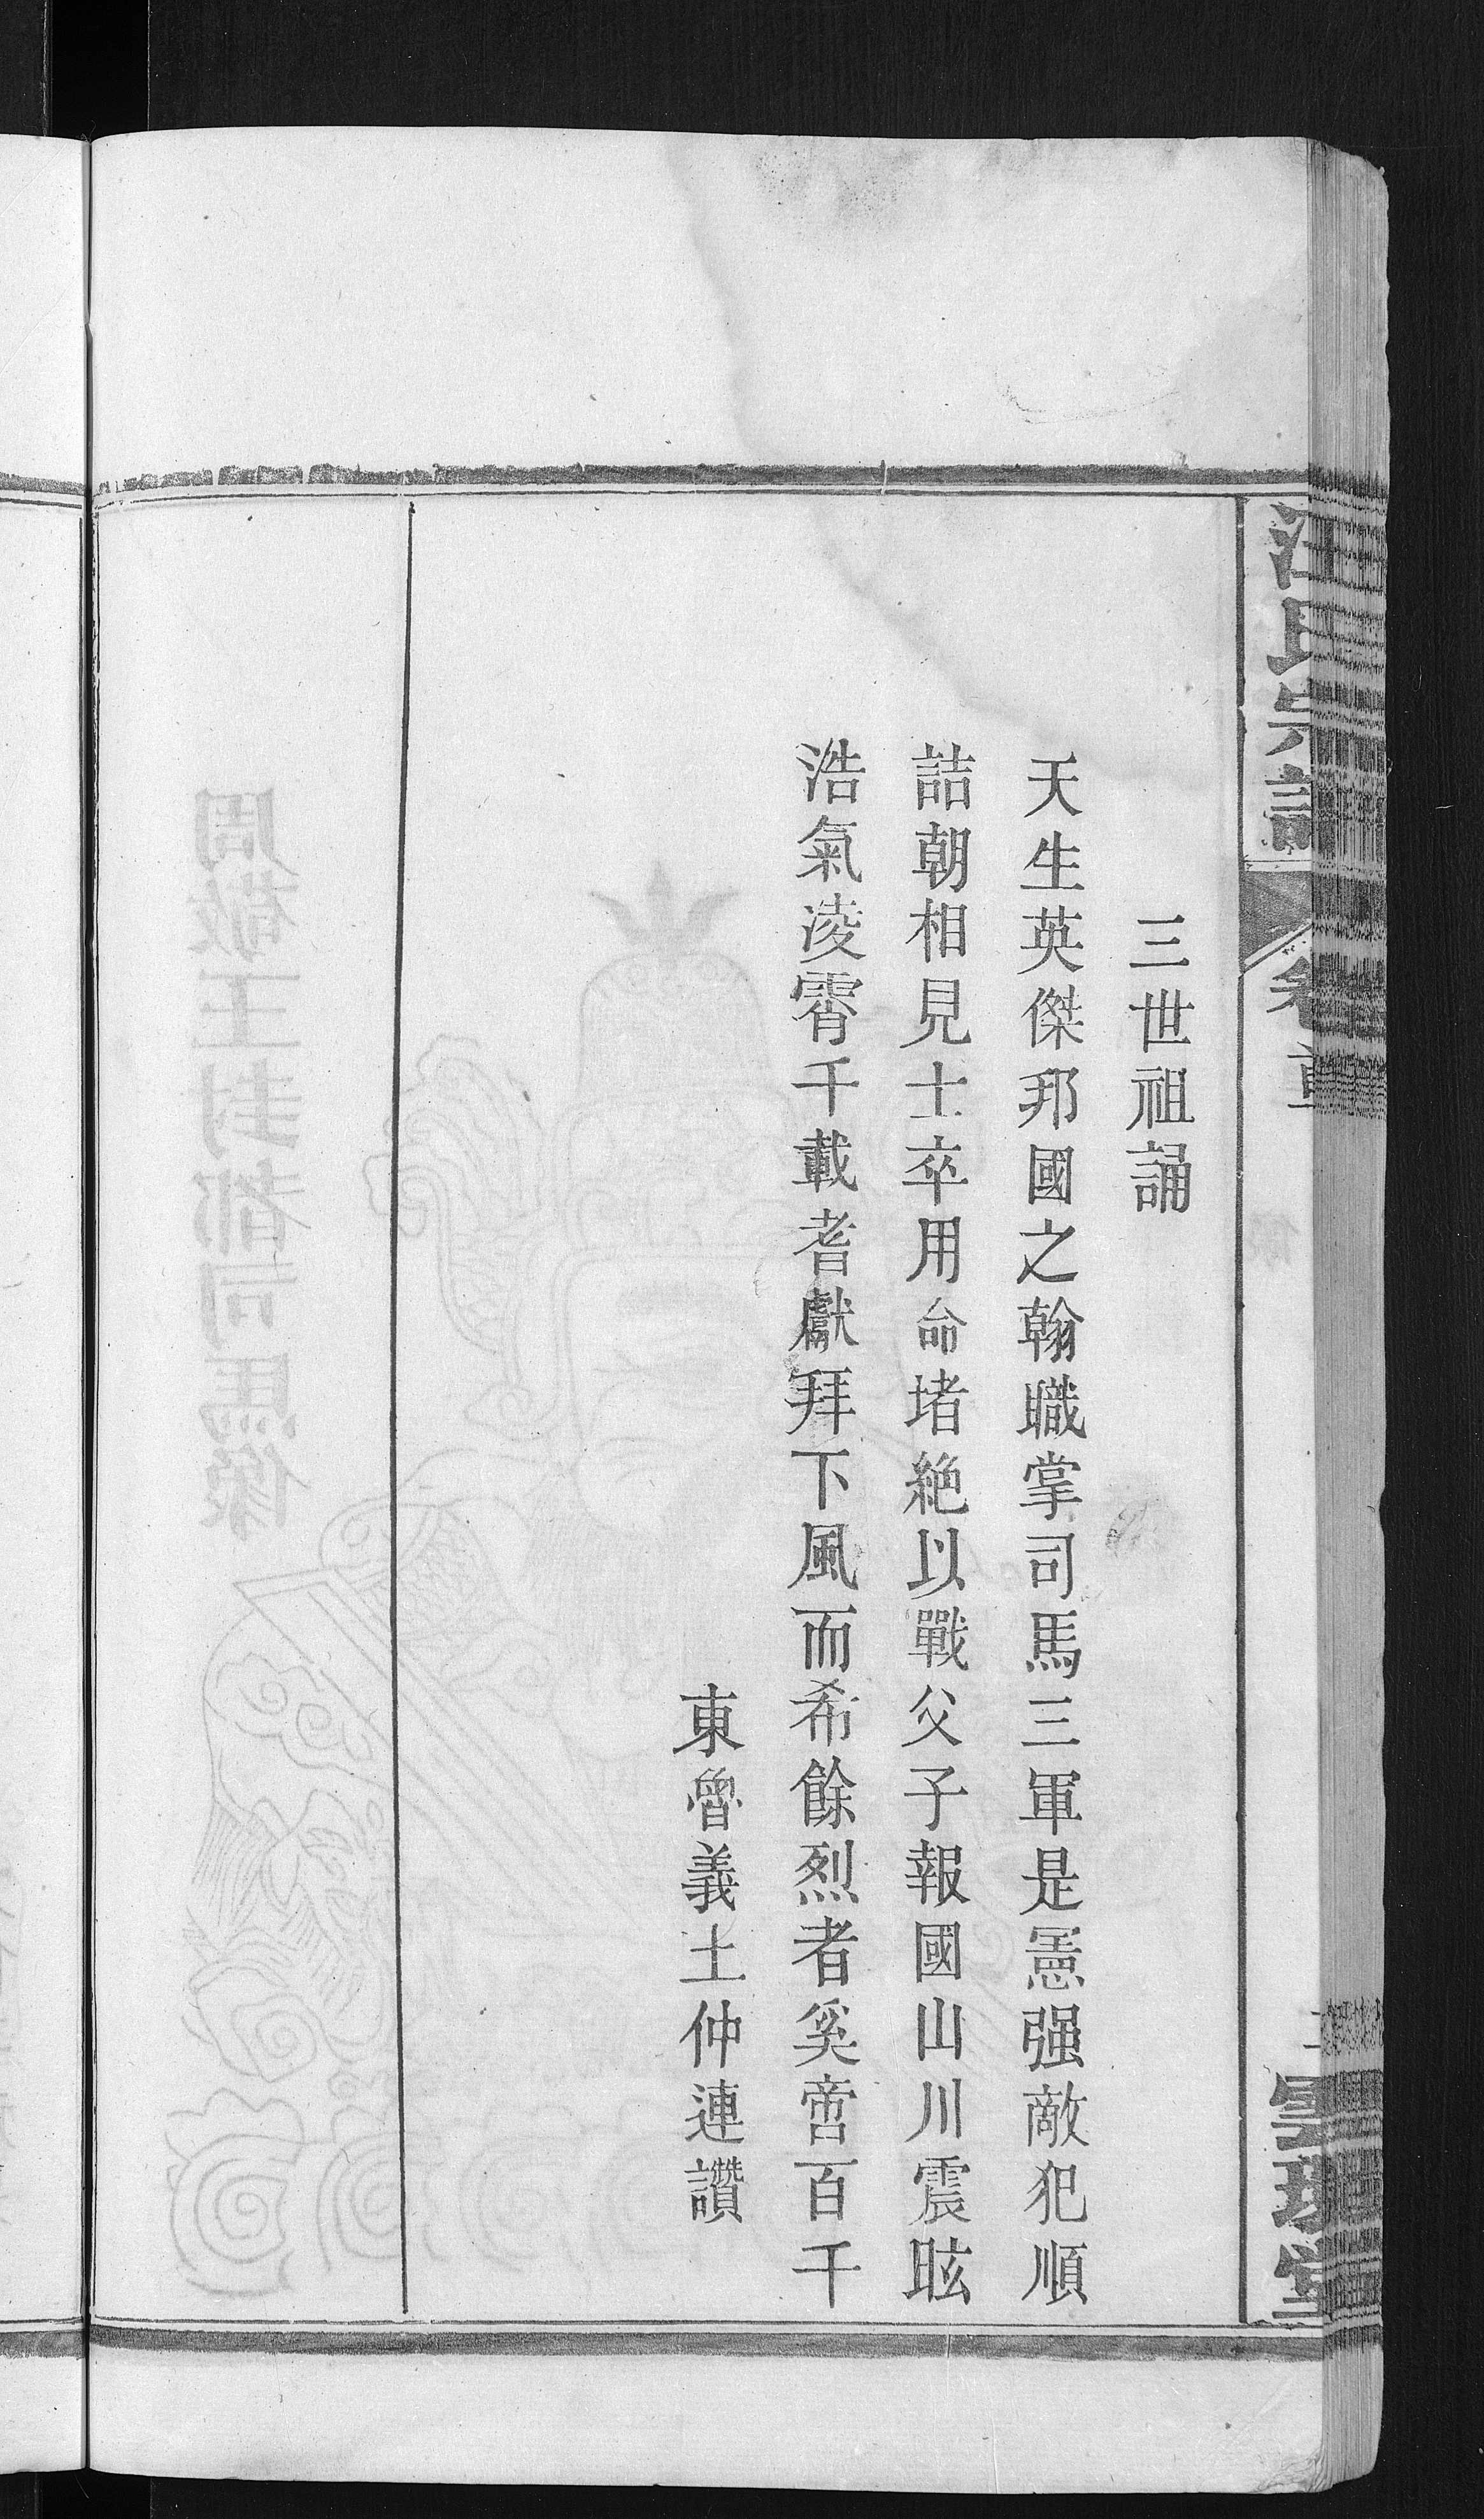 汪氏宗譜
卷首
三世祖誦
天生英傑邦國之翰職掌司馬三軍是憲强敵犯順
詰朝相見士卒用命堵絶以戰父子報國山川震眩
浩氣凌霄千載耆獻拜下風而希餘烈者奚啻百千
東魯義士仲連讚
周敬王封都司馬像